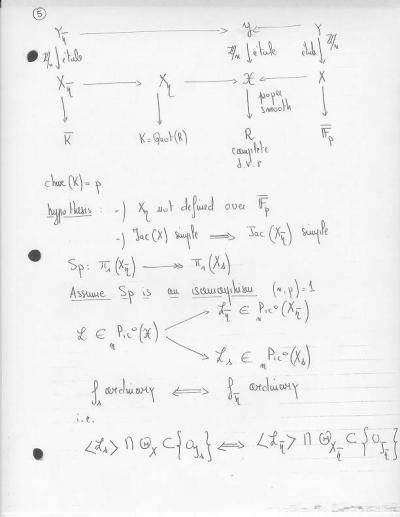 ⑤
Y_η̄ ⟶ 𝒴 ⟵ Y
ℤ/n étale ℤ/n étale étale ℤ/n
X_η̄ ⟶ X_η ⟶ 𝒳 ⟵ X
proper
smooth
K̄ K = Quot(R) R 𝔽̄_p
complete
d.v.r
char(K) = p
hypothesis : -) X_η not defined over 𝔽̄_p
-) Jac(X) simple ⟹ Jac(X_η̄) simple
Sp : π₁(X_η̄) ↠ π₁(X_s)
Assume Sp is an isomorphism (n,p) = 1
ℒ_η̄ ∈ ₙPic⁰(X_η̄)
ℒ ∈ ₙPic⁰(𝒳)
ℒ_s ∈ ₙPic⁰(X_s)
f_s ordinary ⟺ f_η̄ ordinary
i.e.
⟨ℒ_s⟩ ∩ Θ_X ⊂ {0_{J_s}} ⟺ ⟨ℒ_η̄⟩ ∩ Θ_{X_η̄} ⊂ {0_{J_η̄}}